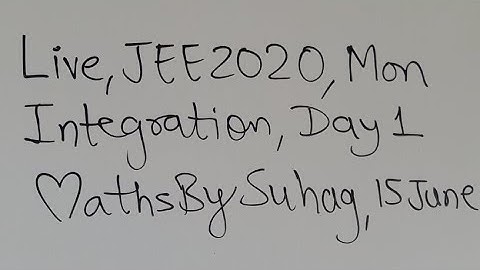 Live, JEE2020, Mon
Integration, Day 1
♡athsBySuhag, 15 June